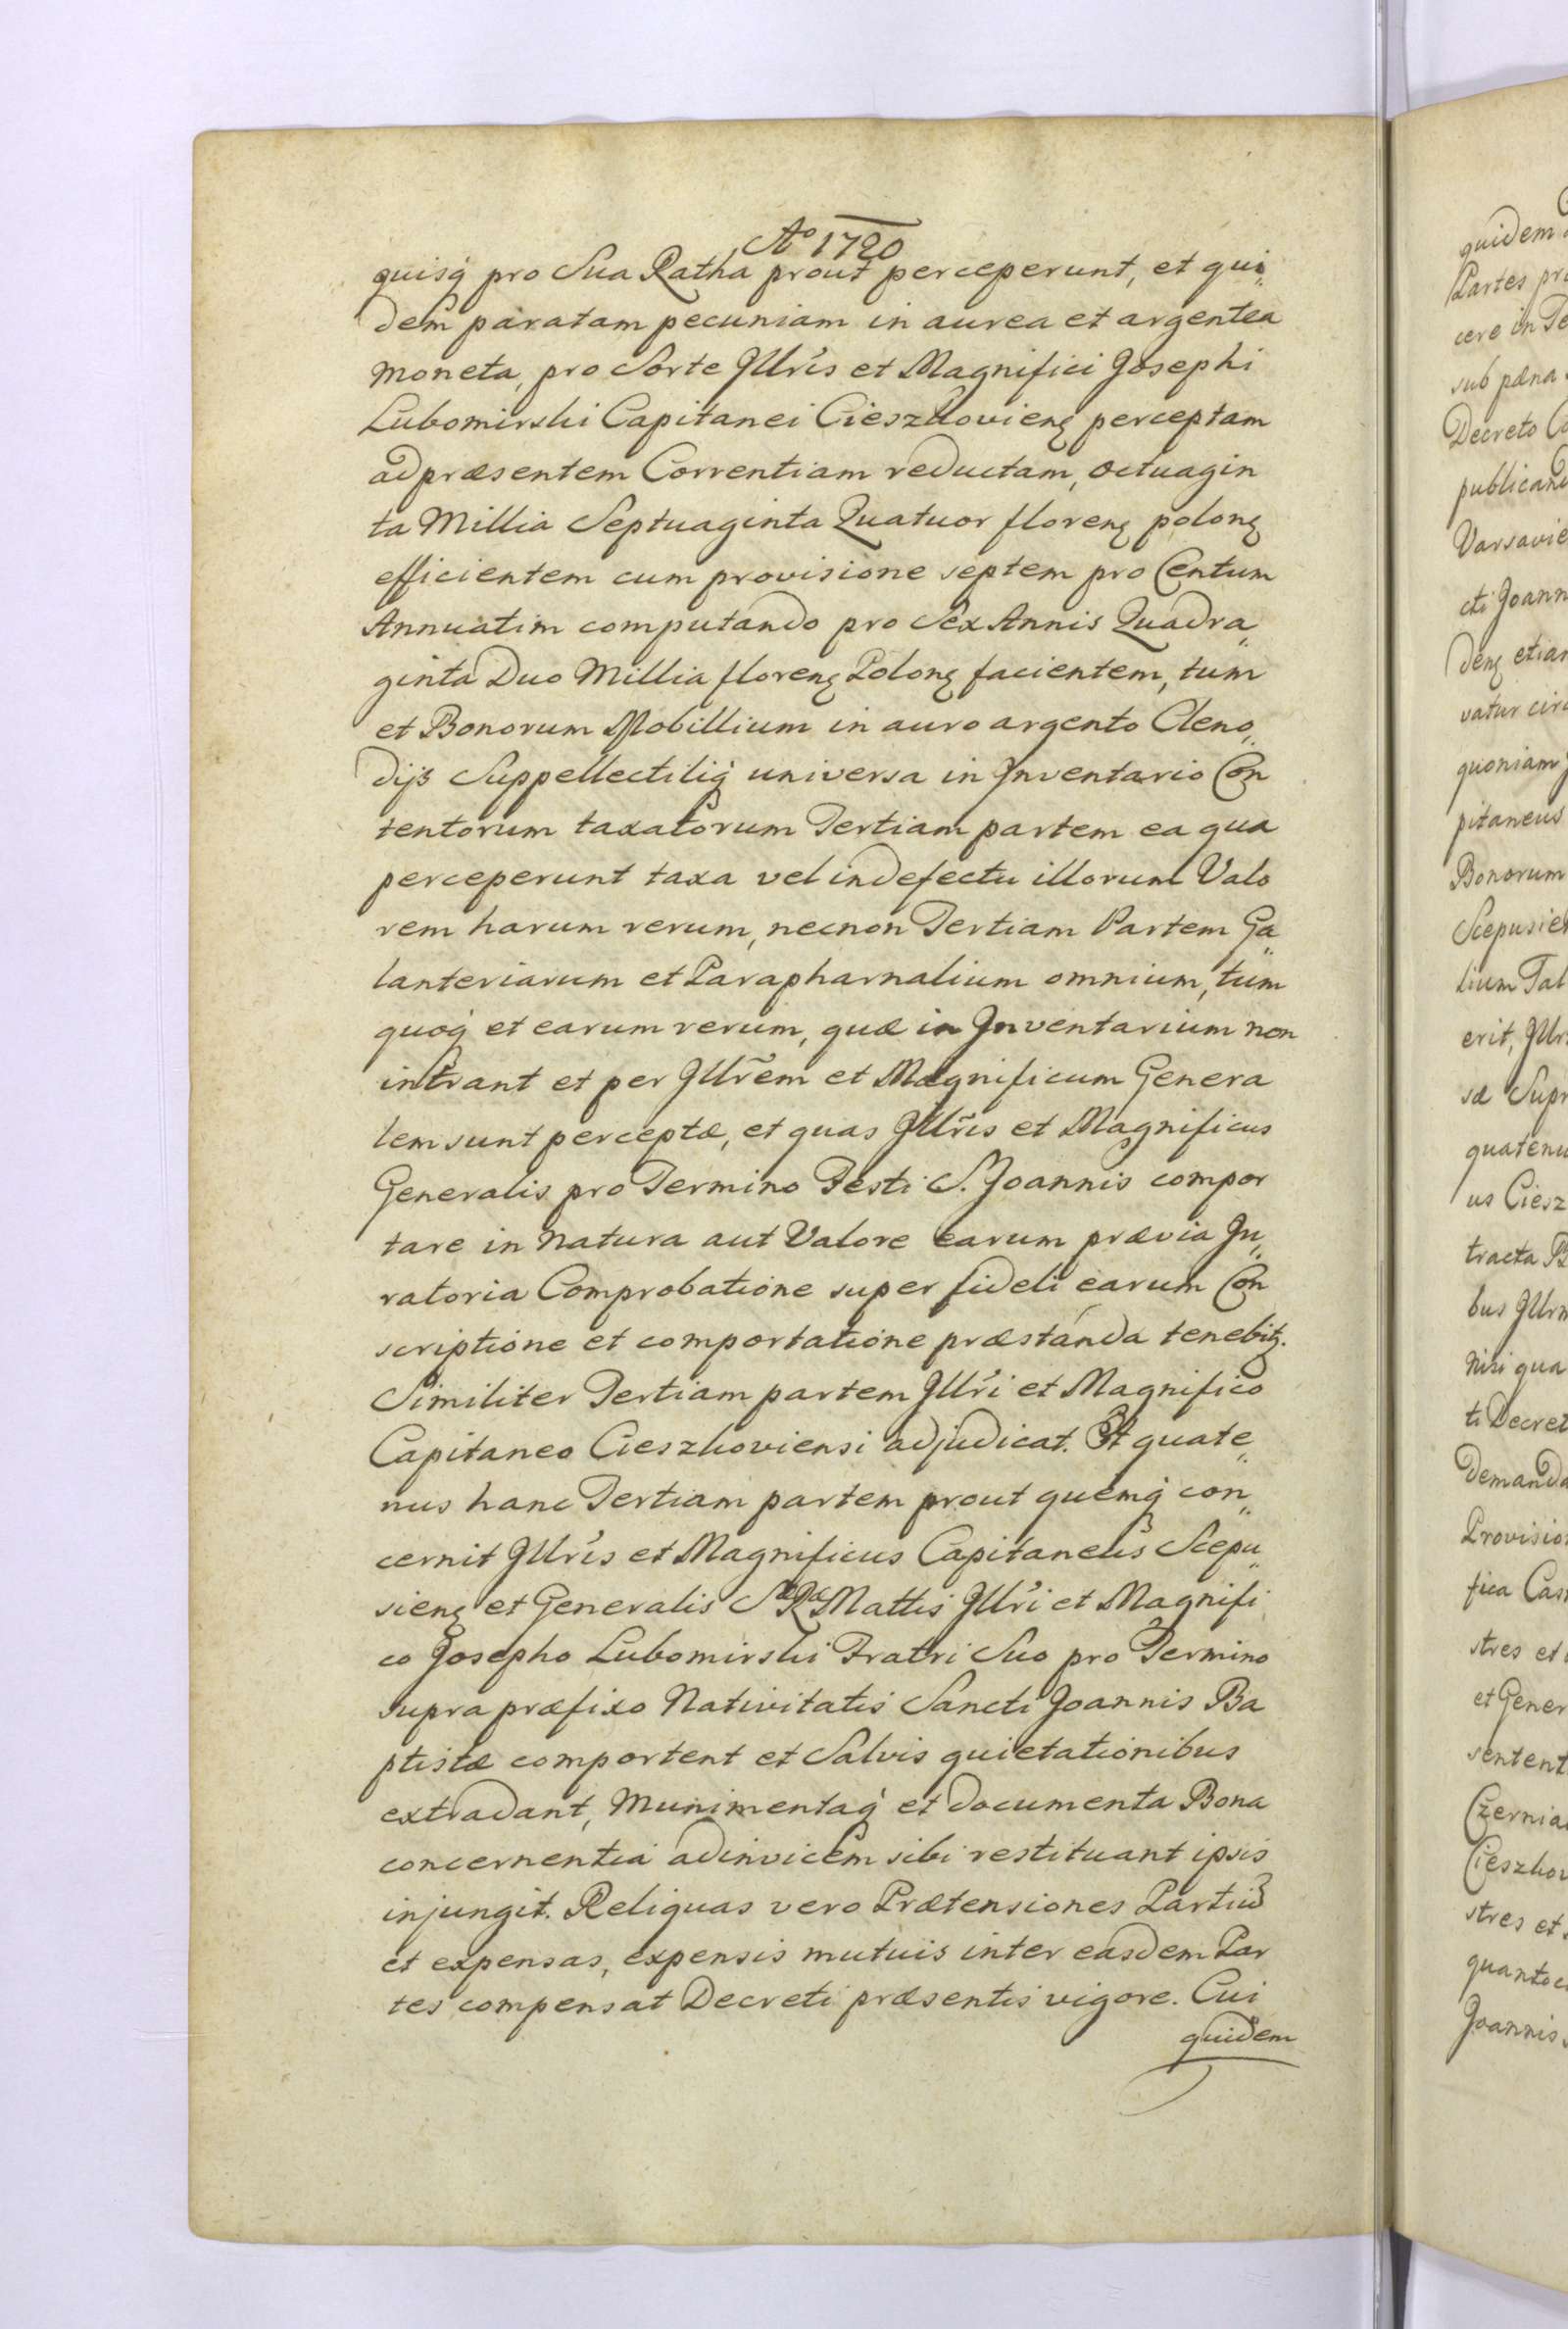 Aº 1720
quisq́ pro Sua Ratha prout perceperunt, et qui„
dem paratam pecuniam in aurea et argentea
moneta, pro Sorte Jllr̃is et Magnifici Josephi
Lubomirski Capitanei Cieszkovienꝫ perceptam
ad præsentem Correntiam reductam, octuagin
ta Millia Septuaginta Quatuor florenꝫ polonꝫ
efficientem cum provisione septem pro Centum
Annuatim computando pro Sex Annis Quadra„
ginta Duo Millia florenꝫ Polonꝫ facientem, tum
et Bonorum Mobillium in auro argento Cleno„
dijs Suppellectiliq́ universa in Jnventario Con
tentorum taxatorum Tertiam partem ea qua
perceperunt taxa vel in defectu illorum Valo
rem harum rerum, necnon Tertiam Partem Ga„
lanteriarum et Parapharnalium omnium, tum
quoq́ et earum rerum, quæ in Jnventarium non
intrant et per Jllr̃em et Magnificum Genera
lem sunt perceptæ, et quas Jllr̃is et Magnificus
Generalis pro Termino Festi S. Joannis compor
tare in natura aut Valore earum prævia Ju„
ratoria Comprobatione super fideli earum Con
scriptione et comportatione præstanda tenebitꝫ.
Similiter Tertiam partem Jllr̃i et Magnifico
Capitaneo Cieszkoviensi adjudicat. Et quate„
nus hanc Tertiam partem prout quemq́ con„
cernit Jllr̃is et Magnificus Capitaneus Scepu„
sienꝫ et Generalis Sæ Ræ Mattis Jllr̃i et Magnifi
co Josepho Lubomirski Fratri Suo pro Termino
supra præfixo Nativitatis Sancti Joannis Ba
ptistæ comportent et Salvis quietationibus
extradant, Munimentaq́ et documenta Bona
concernentia adinvicem sibi restituant ipsis
injungit. Reliquas vero Prætensiones Partiũ
et expensas, expensis mutuis inter easdem Par
tes compensat Decreti præsentis vigore. Cui
quidem
quidem
Partes
cere in
sub pæna
Decreto
cti Joann
denꝫ etia
vatur
quoniam
pitaneus
Bonorum
Scepusie
lium
erit, Jllr
sæ Supr
quatenu
us Ciesz
tracta
bus Jllr
nisi qua
ti Decret
Demanda
Provisio
fica Cas
stres et
et Gener
sentent
Czernia
Cieszkov
stres et
quanto
Joannis